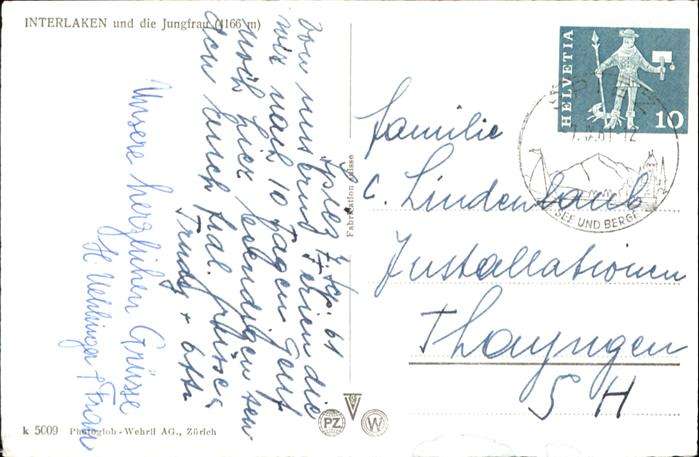 INTERLAKEN und die Jungfrau (4166 m)
Spiez 7. Sep. 61
Von unsern Ferien die
wir nach 10 Tagen Genf
noch hier beendigen sen
den auch frdl. Grüsse
Trudy + Otto
Unsere herzlichen Grüsse
H Uehlinger + Frau
Fabrication Suisse
HELVETIA
10
SPIEZ
7.9.61-12
SEE UND BERGE
Familie
C. Lindenlaub
Installationen
Thayngen
SH
PZ
W
k 5009 Photoglob-Wehrli AG., Zürich